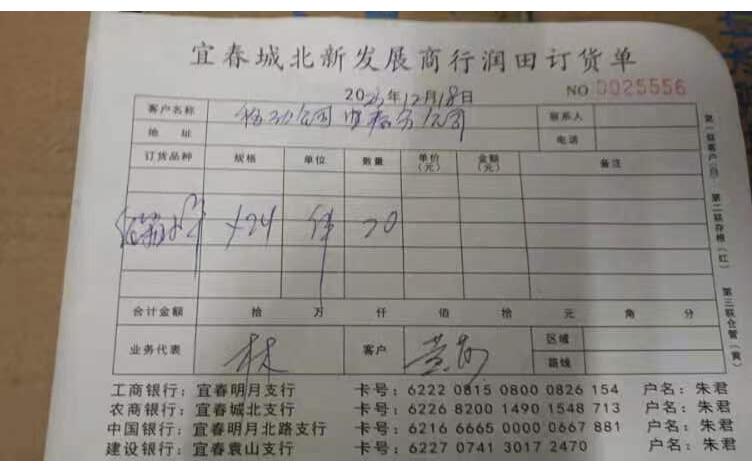 宜春城北新发展商行润田订货单
2023年12月18日 NO 0025556
客户名称 联系人
地址 电话
订货品种 规格 单位 数量 单价(元) 金额(元) 备注
×24 件 20
合计金额 拾 万 仟 佰 拾 元 角 分
业务代表 林 客户 区域
路线
工商银行：宜春明月支行 卡号：6222 0815 0800 0826 154 户名：朱君
农商银行：宜春城北支行 卡号：6226 8200 1490 1548 713 户名：朱君
中国银行：宜春明月北路支行 卡号：6216 6665 0000 0667 881 户名：朱君
建设银行：宜春袁山支行 卡号：6227 0741 3017 2470 户名：朱君
第一联客户(白) 第二联存根(红) 第三联仓管(黄)